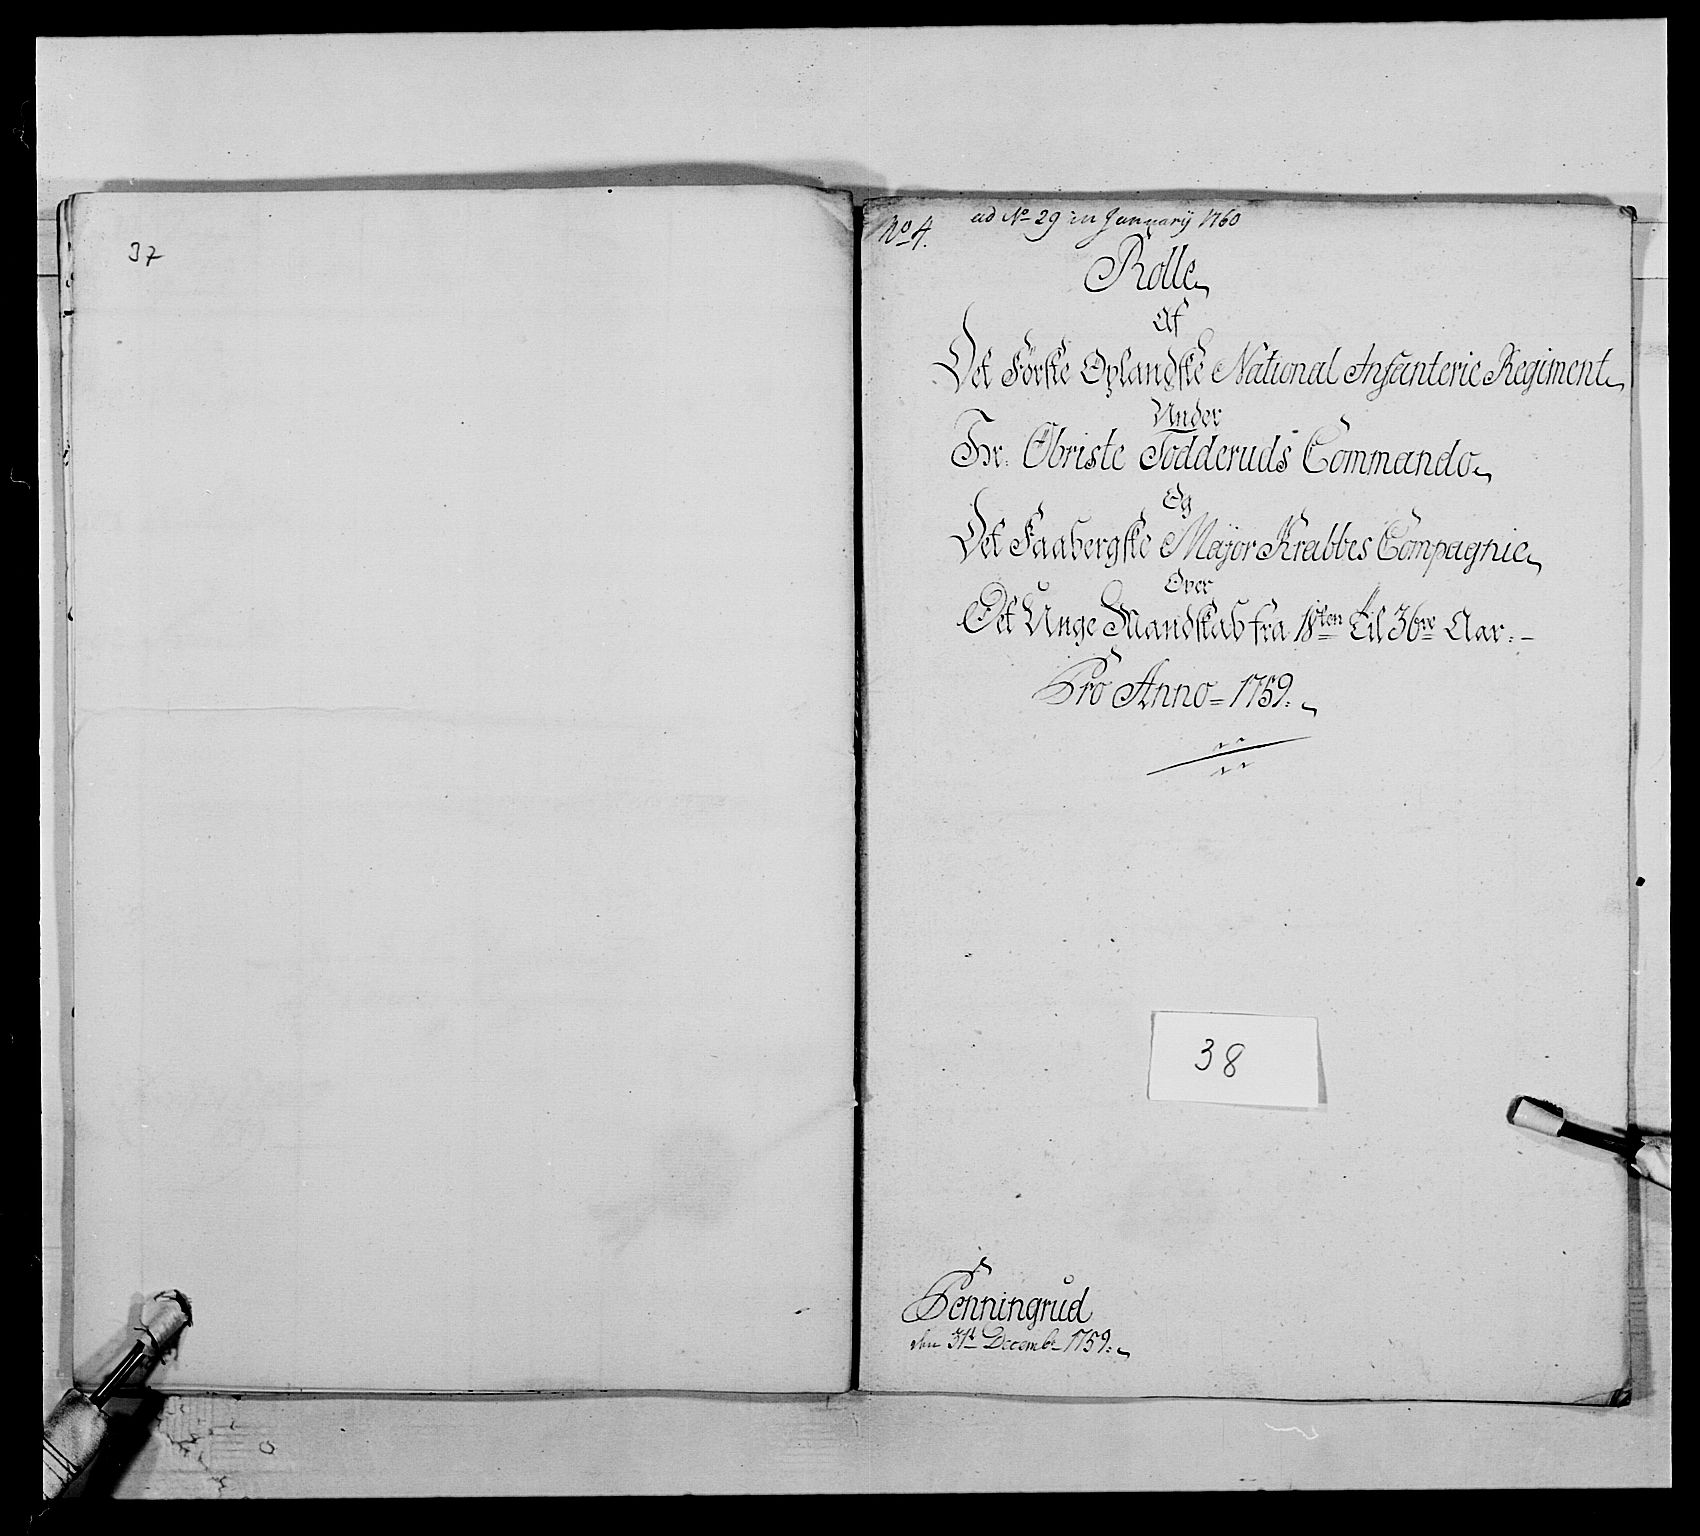 37
No 4.
ad No 29 in Januarij 1760
Rolle
Af
Det Første Oplandske National Infanterie Regiment
Under
Hr: Obriste Todderuds Commando
Og
Det Faabergske Major Krabbes Compagnie
Over
Det Unge Mandskab fra 18ten til 36te Aar:
Pro Anno 1759.
38
Penningrud
den 31t Decembr 1759.